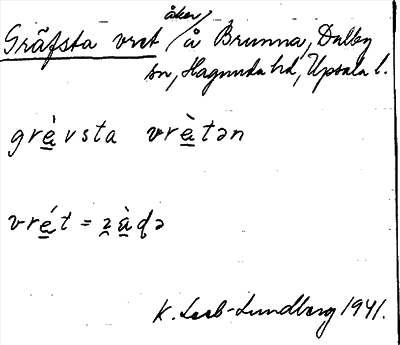 Gräfsta vret / åker / å Brunna, Dalby
sn, Hagunda hd, Uppsala l.
grè̱vsta vrè̱tən
vré̱t = ʒà̱qə
K. Leeb-Lundberg 1941.